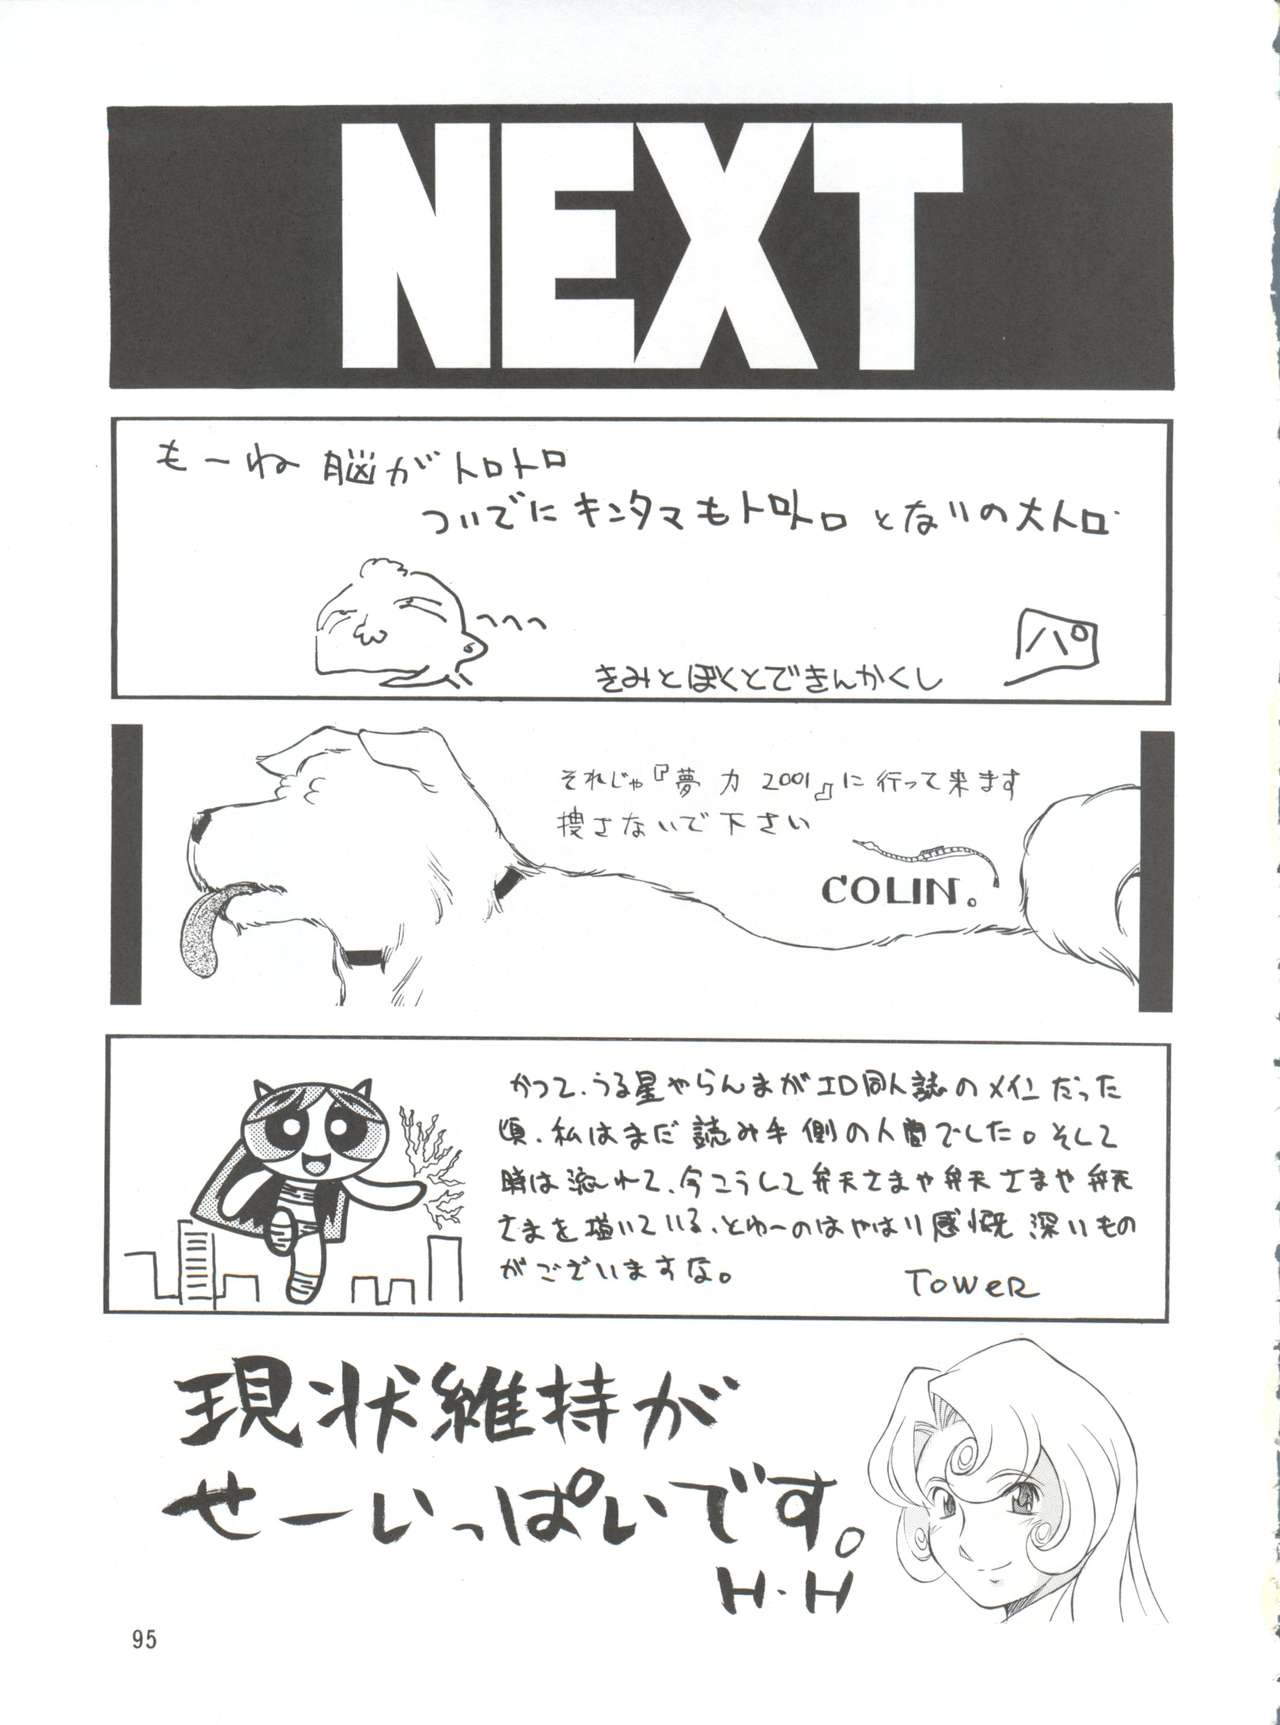 NEXT
もーね 脳がトロトロ
ついでにキンタマもトロトロ とないの大トロ
へへへ
パ
きみとぼくとできんかくし
それじゃ『夢力2001』に行って来ます
捜さないで下さい
COLIN。
かつて、うる星やらんまがエロ同人誌のメインだった
頃、私はまだ読み手側の人間でした。そして
時は流れて、今こうして弁天さまや弁天さまや弁天
さまを描いている、とゆーのはやはり感慨深いもの
がございますな。
TOWER
現状維持が
せーいっぱいです。
H・H
95